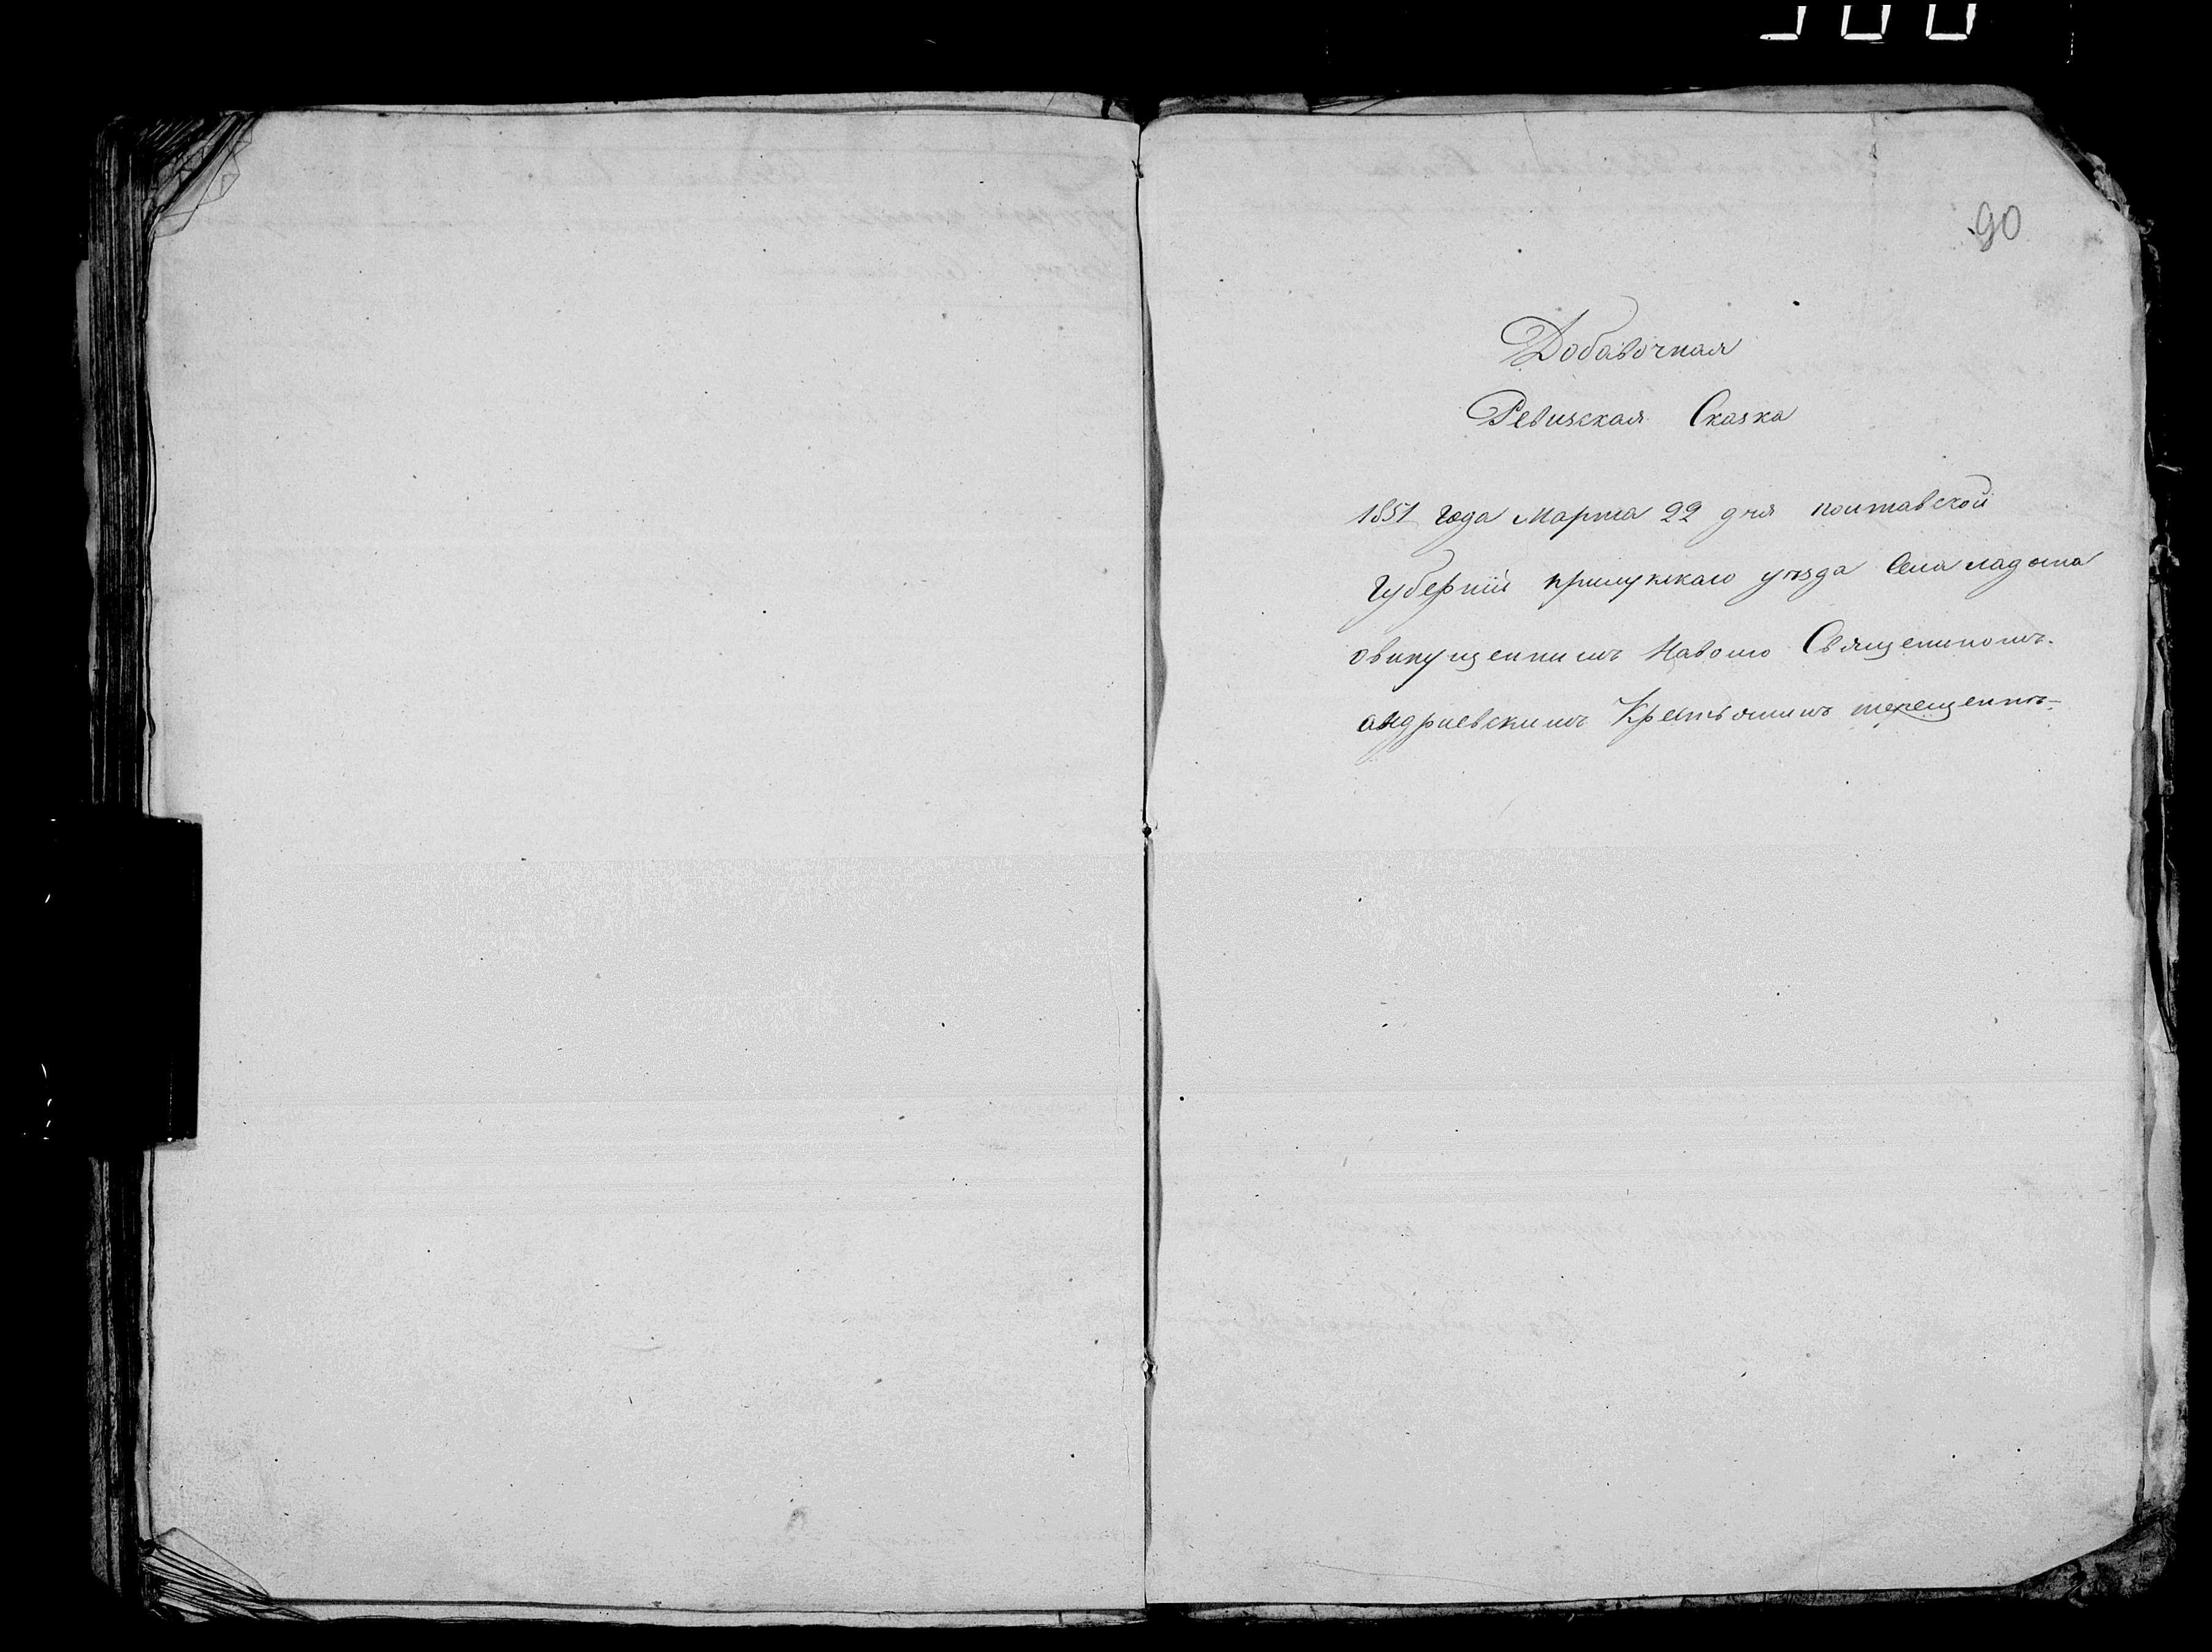 90
Добавочная
Ревизская Сказка
1851 года Марта 22 дня полтавской
Губерніи прилуцкаго уѣзда Села ладана
о впущенним Священиком
андриевским Крестьяним терещенкѣ